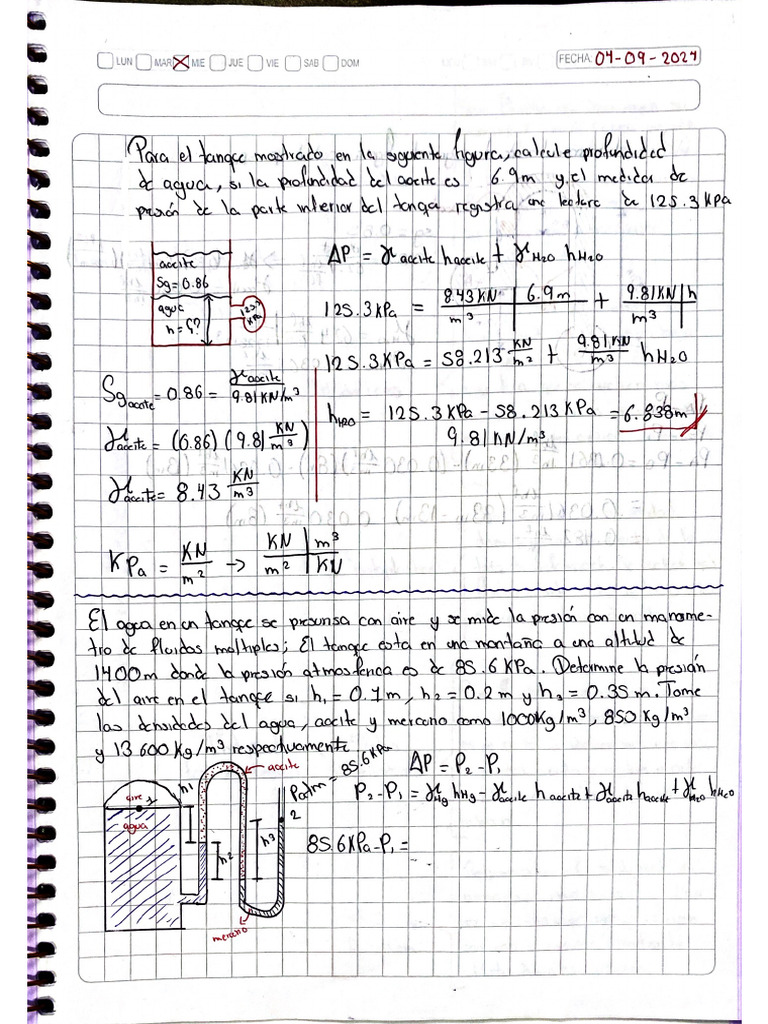 LUN MAR MIE JUE VIE SAB DOM FECHA: 04-09-2024
Para el tanque mostrado en la siguiente figura, calcule profundidad
de agua, si la profundidad del aceite es 6.9m y el medidor de
presión de la parte inferior del tanqe registra una lectura de 125.3 KPa
aceite
Sg = 0.86
agua
h = ¿?
125.3
KPa
ΔP = γaceite haceite + γH2O hH2O
125.3 KPa = 8.43 KN/m³ | 6.9m + 9.81 KN/m³ | h
125.3 KPa = 58.213 KN/m² + 9.81 KN/m³ hH2O
hH2O = 125.3 KPa - 58.213 KPa / 9.81 KN/m³ = 6.838m
Sgaceite = 0.86 = γaceite / 9.81 KN/m³
γaceite = (0.86)(9.81 KN/m³)
γaceite = 8.43 KN/m³
KPa = KN/m² → KN/m² | m³/KN
El agua en un tanque se presuriza con aire y se mide la presión con un maname-
tro de fluidos multiples; El tanque esta en una montaña a una altitud de
1400m donde la presión atmosferica es de 85.6 KPa. Determine la presión
del aire en el tanque si h1 = 0.1m, h2 = 0.2m y h3 = 0.35m. Tome
las densidades del agua, aceite y mercurio como 1000Kg/m³, 850 Kg/m³
y 13 600 Kg/m³ respectivamente
aire
1
agua
h1
h2
aceite
h3
mercurio
Patm = 85.6 KPa
2
ΔP = P2 - P1
P2 - P1 = γHg hHg - γaceite haceite + γaceite haceite + γH2O hH2O
85.6 KPa - P1 =